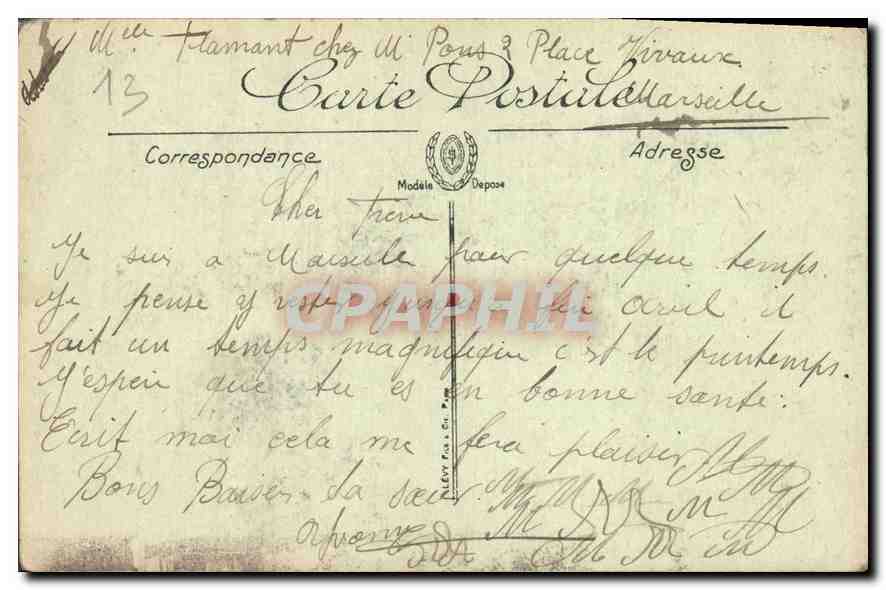 Mlle Flamant chez Mr Pons 2 Place Vivaux
13
Carte Postale
Marseille
Correspondance
Adresse
Modèle Déposé
Cher Frere
Je suis a Marseille pour quelque temps.
Je pense y rester jusqu'a fin avril il
CPAPHIL
fait un temps magnifique c'est le printemps.
J'espere que tu es en bonne santé.
Ecrit moi cela me fera plaisir
LÉVY Fils & Cie, Paris
Bons Baisers ta sœur
Yvonne